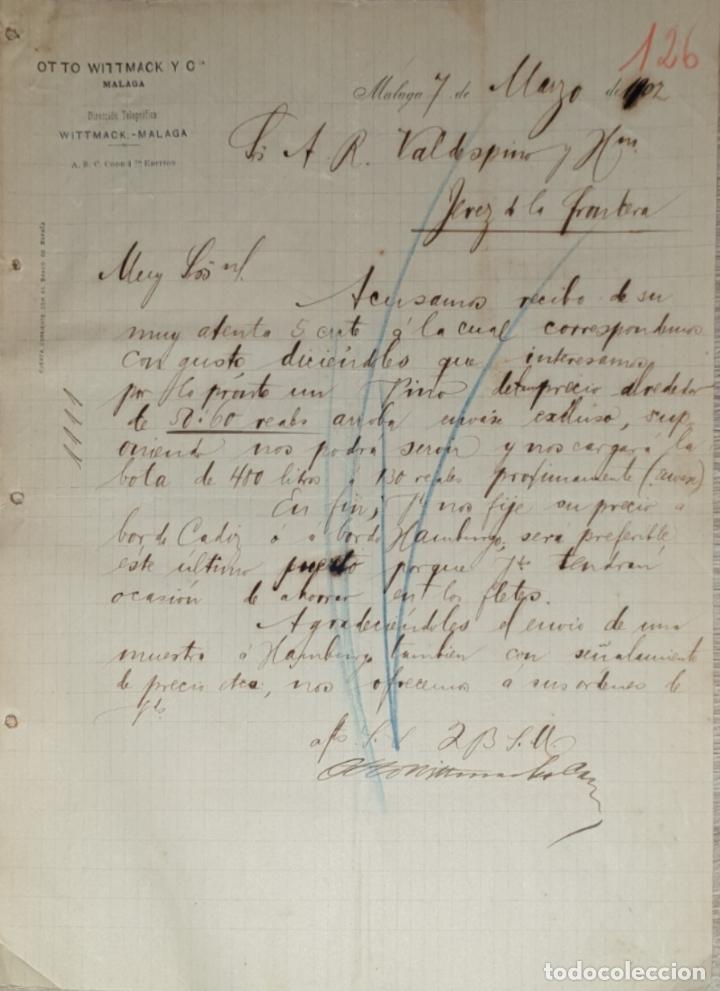 126
OTTO WITTMACK Y Cía
MALAGA
Dirección Telegráfica
WITTMACK.-MALAGA
A. B. C. Code 4th Edition
Málaga 7 de Marzo de 1902
Srs A. R. Valdespino y Hno.
Jerez de la Frontera
CUENTA CORRIENTE CON EL BANCO DE ESPAÑA
Muy Srs
Acusamos recibo de su
muy atenta 5 crte á la cual correspondemos
con gusto diciéndoles que interesamos
por lo pronto un Fino de un precio alrededor
de 58:60 reales arroba envase excluso, sup
oniendo nos podrá servir y nos cargará la
bota de 400 litros á 130 reales proximamente (envase)
En fin, nos fije su precio a
bordo Cadiz ó á bordo Hamburgo, será preferible
este último puerto porque tendrán
ocasión de ahorrar en los fletes.
Agradeciéndoles el envio de una
muestra á Hamburgo tambien con señalamiento
de precio etca, nos ofrecemos a sus ordenes de
Vds
afs S. S. Q B S. M
Otto Wittmack y Cia
todocoleccion